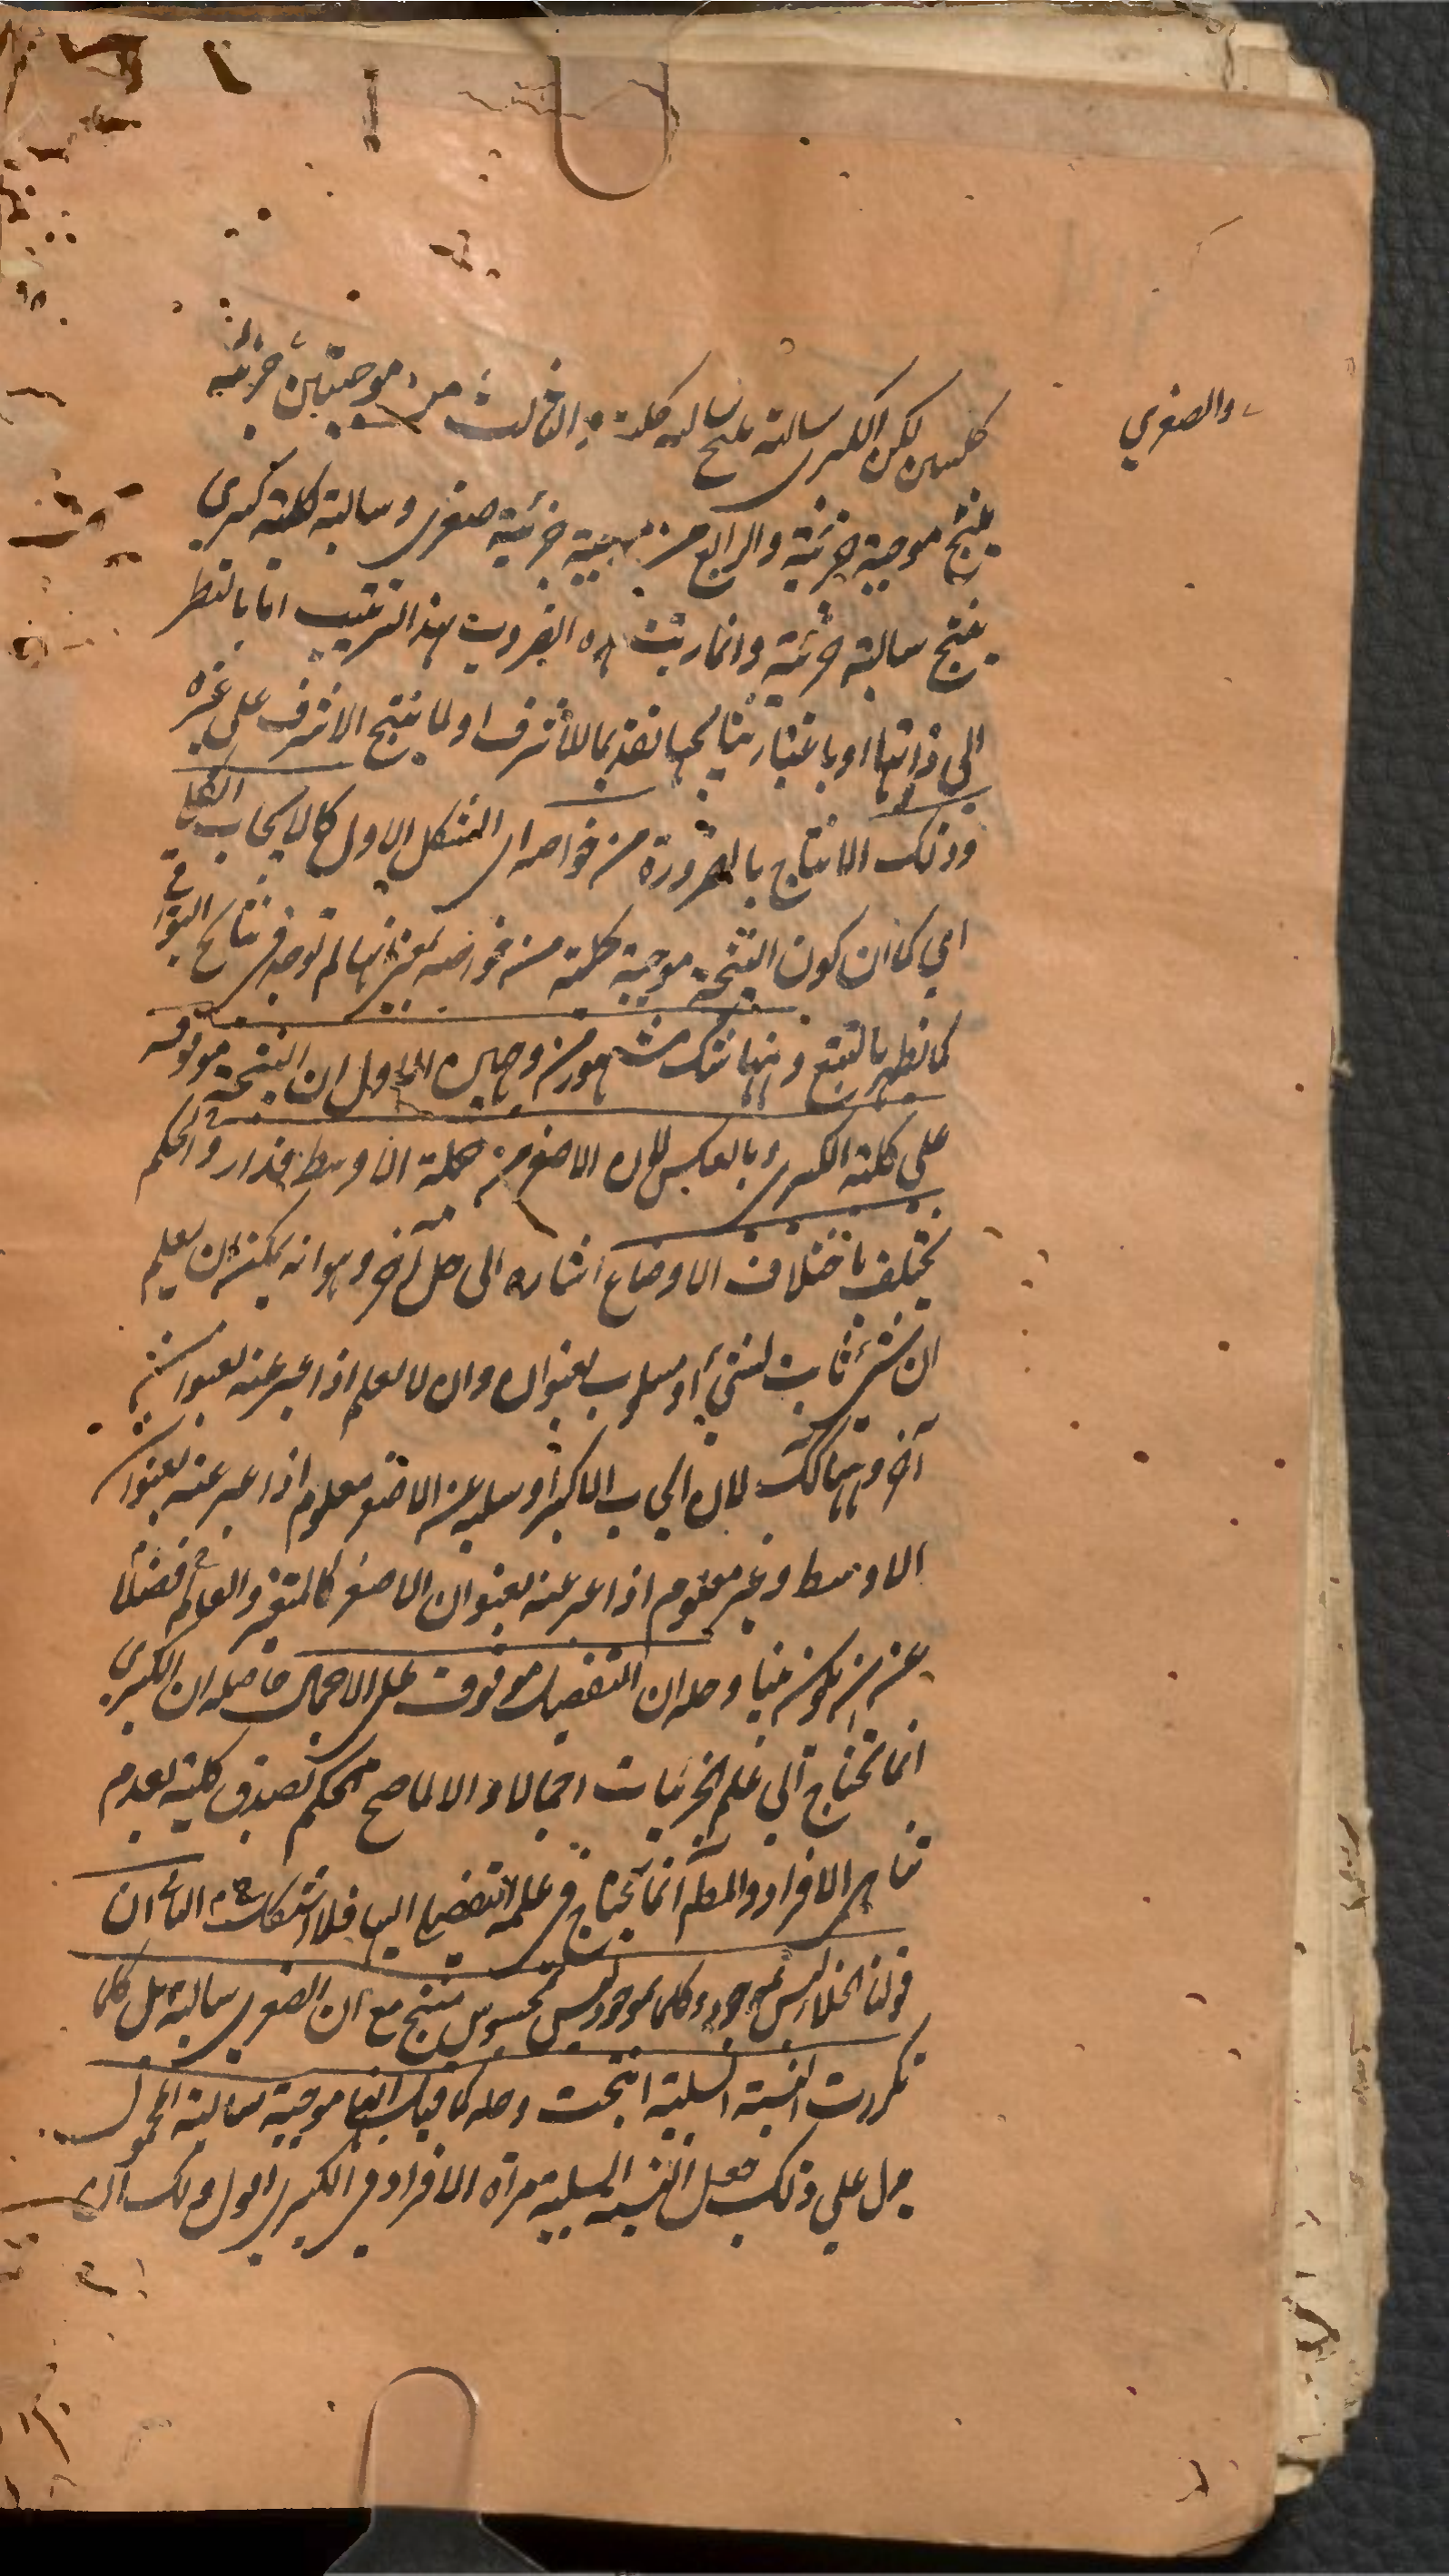 كليتين لكن الكبرى سالبة ينتج سالبة كلية و الثالث من موجبتين جزئية
والصغرى
ينتج موجبة جزئية والرابع من موجبة جزئية صغرى وسالبة كلية كبرى
ينتج سالبة جزئية وانما رتبت هذه الضروب هذا الترتيب اما بالنظر
الى ذاتها او باعتبار نتايجها تقديما للاشرف او لما ينتج الاشرف على غيره
وذلك الانتاج بالضرورة من خواصه اى الشكل الاول كالايجاب الكلى
اي كما ان كون النتيجة موجبة كلية من خواصه بمعنى انها لم توجد فى نتايج البواقى
كما يظهر بالتتبع وههنا شك مشهور من وجهين الاول ان النتيجة موقوفة
على كلية الكبرى وبالعكس لان الاصغر من جملة الاوسط فدار و حله ان الحكم
يختلف باختلاف الاوصاف اشارة الى حل آخر وهو انه يمكن ان يعلم
ان شئ ثابت لشئ او مسلوب بعنوان وان لا يعلم اذا عبر عنه بعنوان
آخر وههنا كك لان ايجاب الاكبر او سلبه عن الاصغر معلوم اذا عبر عنه بعنوان
الاوسط وغير معلوم اذا عبر عنه بعنوان الاصغر كالمتغير والعالم فضلا
عن ان يكون بينا وحله ان التفصيل موقوف على الاجمال حاصله ان الكبرى
انما تحتاج الى علم الجزئيات اجمالا والا لما صح الحكم بصدق كلية لعدم
تناهى الافراد والمط انما يحتاج فى علمه التفصيلى اليها فلا اشكال الثانى ان
قولنا الخلا ليس بموجود وكلما ليس بموجود ليس بمحسوس ينتج مع ان الصغرى سالبة بل كلما
تكررت النسبة السلبية انتجت وحله كما قيل انها موجبة سالبة المحمول
يدل على ذلك جعل النسبة السلبية مرآة الافراد فى الكبرى اقول ولك ان